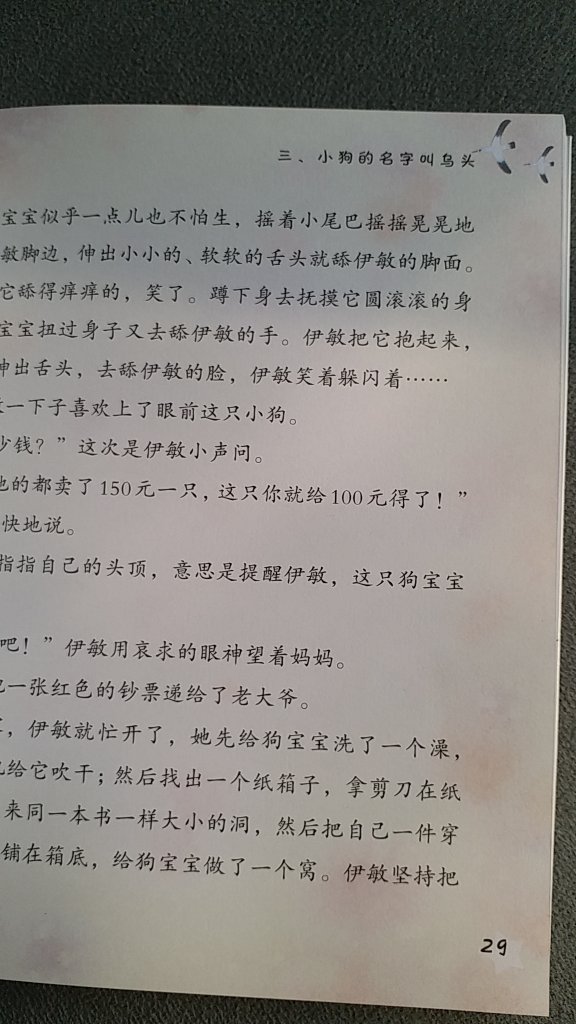 三、小狗的名字叫乌头
宝宝似乎一点儿也不怕生，摇着小尾巴摇摇晃晃地
敏脚边，伸出小小的、软软的舌头就舔伊敏的脚面。
它舔得痒痒的，笑了。蹲下身去抚摸它圆滚滚的身
宝宝扭过身子又去舔伊敏的手。伊敏把它抱起来，
伸出舌头，去舔伊敏的脸，伊敏笑着躲闪着……
一下子喜欢上了眼前这只小狗。
少钱？”这次是伊敏小声问。
他的都卖了150元一只，这只你就给100元得了！”
快地说。
指指自己的头顶，意思是提醒伊敏，这只狗宝宝
吧！”伊敏用哀求的眼神望着妈妈。
一张红色的钞票递给了老大爷。
，伊敏就忙开了，她先给狗宝宝洗了一个澡，
给它吹干；然后找出一个纸箱子，拿剪刀在纸
来同一本书一样大小的洞，然后把自己一件穿
铺在箱底，给狗宝宝做了一个窝。伊敏坚持把
29